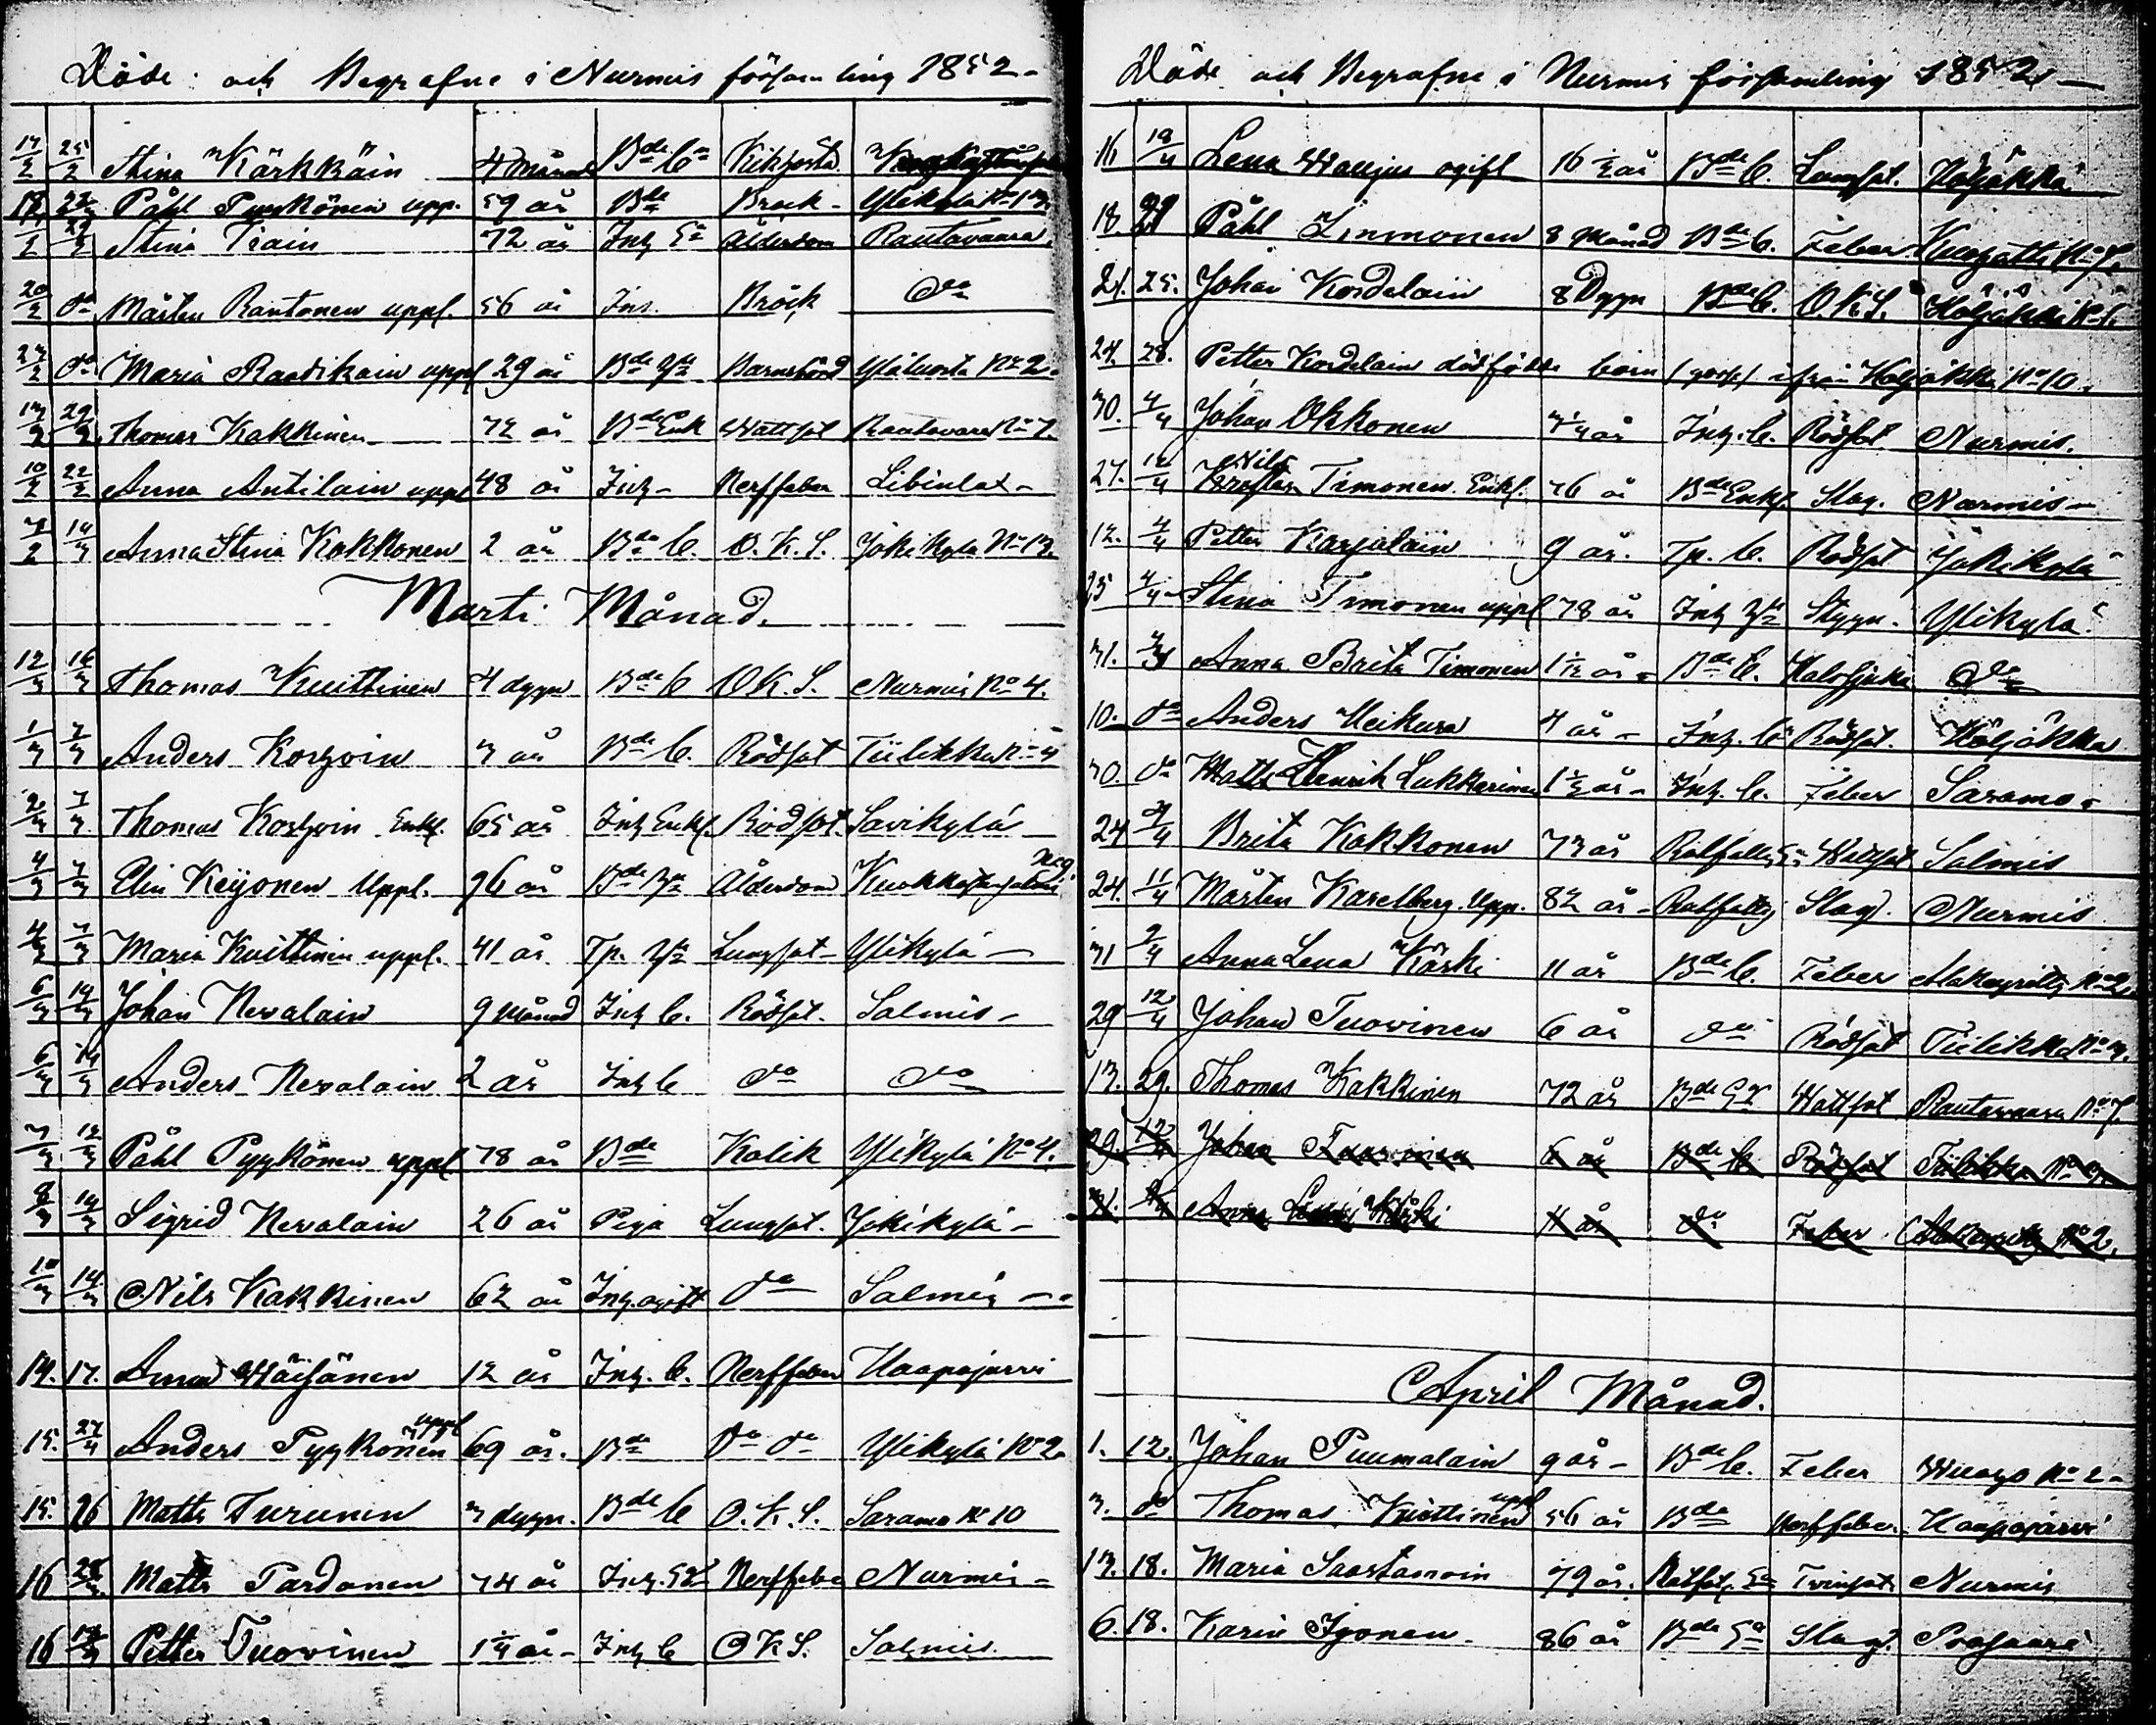 Döde och Begrafne i Nurmis församling 1852
17/2 25/2 Stina Kärkkäin 4 månad Bde b Kikhosta
Påhl Pyykönen upp. 59 år Bde Bråck Ylikylä No 13.
Stina Piain 72 år Inh Ea Ålderdom Rautavaara
20/2 do Mårten Rautonen uppl. 56 år Inh. Bråck do
do Maria Raadikain uppl 29 år Bde Barnsbörd No 2.
Thomas Kakkinen 72 år Bde Enk Wattsot Rautavaara No 7.
10/2 22/2 Anna Antilain uppl 48 år Inh Nerffeber Libinlax
Anna Stina Kokkonen 2 år Bde b. O. K. S. Jokikylä No 13.
Marti Månad.
12/3 16/3 Thomas Kuittinen 4 dygn Bde b O K. S. Nurmis No 4.
1/3 7/3 Anders Korhoin 3 år Bde b. Rödsot Tiilikka No 4
2/3 7/3 Thomas Korhoin Enkl. 65 år Inh Enkl. Rödsot. Savikylä
4/3 7/3 Elin Keyonen Uppl. 96 år Bde Ålderdom
4/3 7/3 Maria Kuittinen uppl. 41 år Tp. Lungsot Ylikylä
6/3 14/3 Johan Nevalain 9 månad Inh b. Rödsot. Salmis
6/3 14/3 Anders Nevalain 2 år Inh b do do
7/3 12/3 Påhl Pyykönen uppl 78 år Bde Kolik Ylikylä No 4.
8/3 14/3 Sigrid Nevalain 26 år Piga Lungsot. Jokikylä
10/3 14/3 Nils Kakkinen 62 år Inh. ogift do Salmis
14. 17. Anna Wäisänen 12 år Inh. b. Nerffeber Haapajarvi
15. 27/4 Anders Pyykönen uppl 69 år. Bde do do Ylikylä No 2
15. 26 Matts Turunen 3 dygn. Bde b O. K. S. Saramo No 10
16 28/3 Matts Pardanen 74 år Inh. Nerffeber Nurmis
16 Petter Tuovinen 1 1/4 år Inh b O K S. Salmis
Döde och Begrafne i Nurmis församling 1852
16 18/4 Lena Wallius ogift 16 1/2 år Bde b. Lungsot. Höljäkkä
18. 21 Påhl Linnonen 8 Månad Bde b. Feber
21. 25. Johan Kordelain 8 Dygn Bde b. O. K. S. Höljäkkä
24. 28. Petter Kordelain dödfödde barn ifrån Höljäkkä No 10.
30. 4/4 Johan Okkonen år Inh. b. Rödsot Nurmis.
27. 12/4 Nils Timonen Enkl. 76 år Bde Enkl. Slag. Nurmis
12. 4/4 Petter Karjalain 9 år. Tp. b. Rödsot Jokikylä
25 4/4 Stina Timonen uppl 78 år Inh Stygn. Ylikylä
31. Anna Brita Timonen 1 1/2 år Bde b. Halssjuka do
10. do Anders Meikura 4 år Inh. b Rödsot. Höljäkkä
30. do Matts Henrik Lukkarinen 1 1/2 år Inh. b. Feber Saramo
24 Brita Kokkonen 73 år Rotfattig Wattsot Salmis
24. 11/4 Mårten Karelberg. Upp. 82 år Rotfattig Slag. Nurmis
31 9/4 Anna Lena Kärki 11 år Bde b. Feber Alakeyritty No 2.
29 12/4 Johan Tuovinen 6 år do Rödsot Tiilikka No 3.
13. 29. Thomas Kakkinen 72 år Bde Wattsot Rautavaara No 7.
29. 12/4 Johan Tuovinen 6 år Bde b Rödsot Tiilikka No 3.
31. 9/4 Anna Lena Kärki 11 år do Feber Alakeyritty No 2.
April Månad.
1. 12. Johan Puumalain 9 år Bde b. Feber Wuoyo No 2
3. do Thomas Kuottinen uppl 56 år Bde Nerffeber Haapajarvi
13. 18. Maria Saastamoin 79 år. Rotfat. Ea Tvinsot Nurmis
6. 18. Karin Iyonen 86 år Bde Ea Slag.